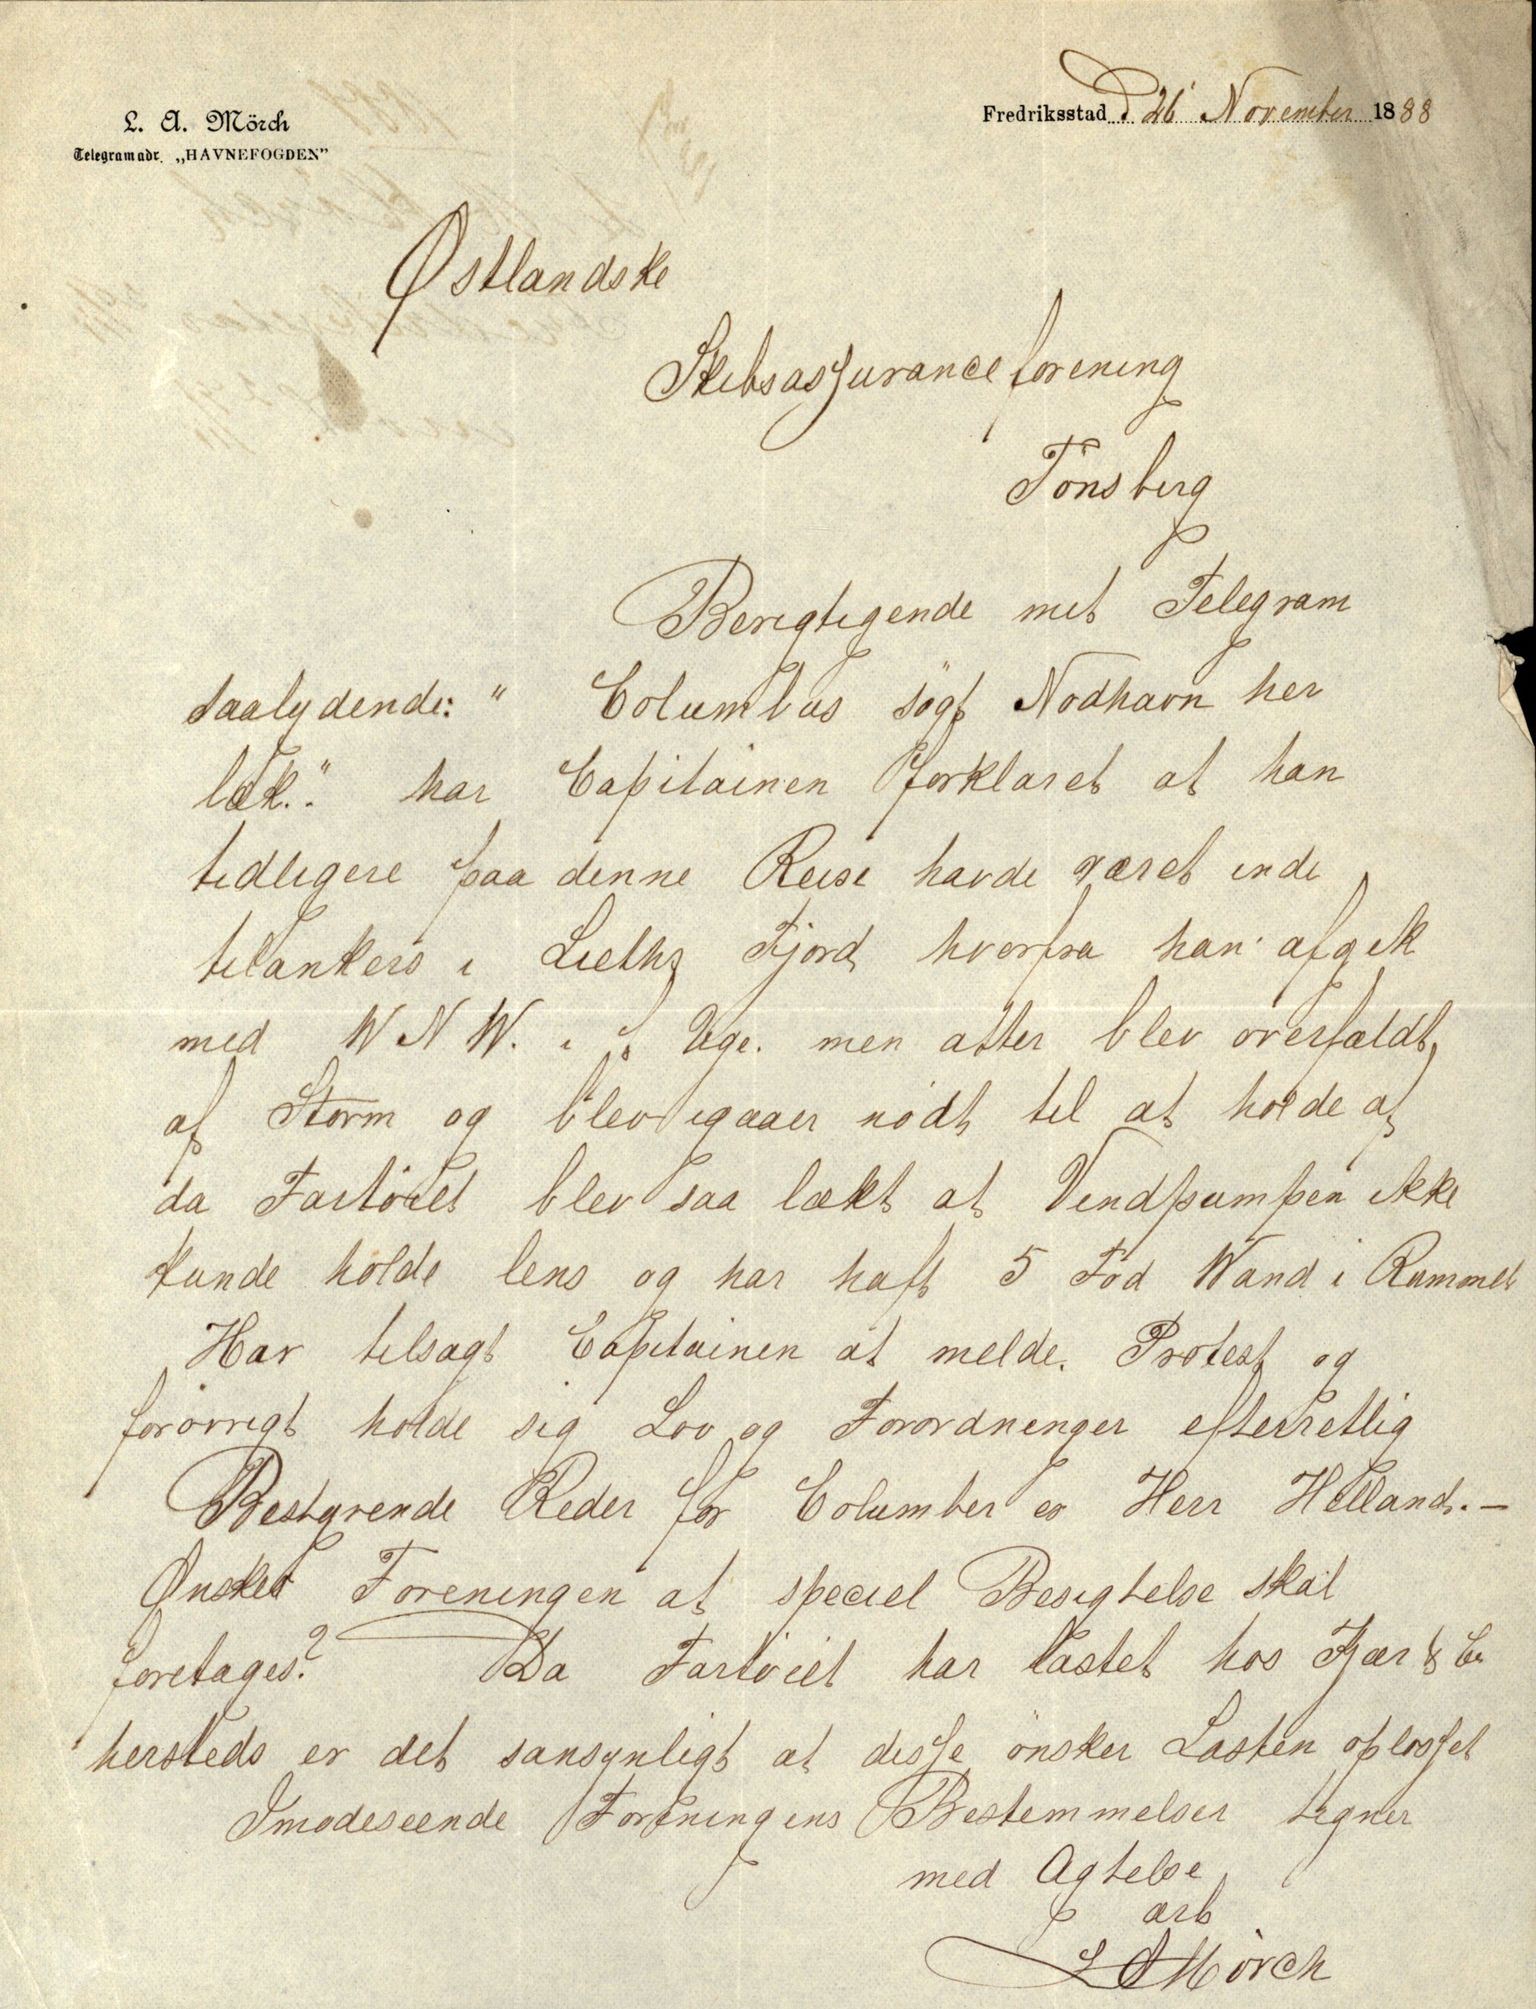 L. A. Mörch
Telegramadr. „HAVNEFOGDEN”
Fredriksstad d 26' November 1888
Østlandske
Skibsassuranceforening
Tönsberg
Berigtigende mit Telegram
saalydende: " Columbus søgt Nødhavn her
læk." har Capitainen forklaret at han
tidligere paa denne Reise havde været inde
tilankers i Lieths Fjord hvorfra han afgik
med WNW. i Uge. men atter blev overfaldt,
af Storm og blev igaaer nödt til at holde af
da Fartöiet blev saa lækt at Vindpumpen ikke
kunde holde lens og har haft 5 Fod Wand i Rummet
Har tilsagt Capitainen at melde. Protest og
forövrigt holde sig Lov og Forordninger efterretlig
Bestyrende Reder for Columbus er Herr Helland. —
Ønsker Foreningen at speciel Besigtelse skal
foretages? Da Fartöiet har lastet hos Kjær & Co
hersteds er det sansynligt at disse önsker Lasten oplosset
Imødeseende Foreningens Bestemmelser tegner
med Agtelse
ærb
L A Mörch